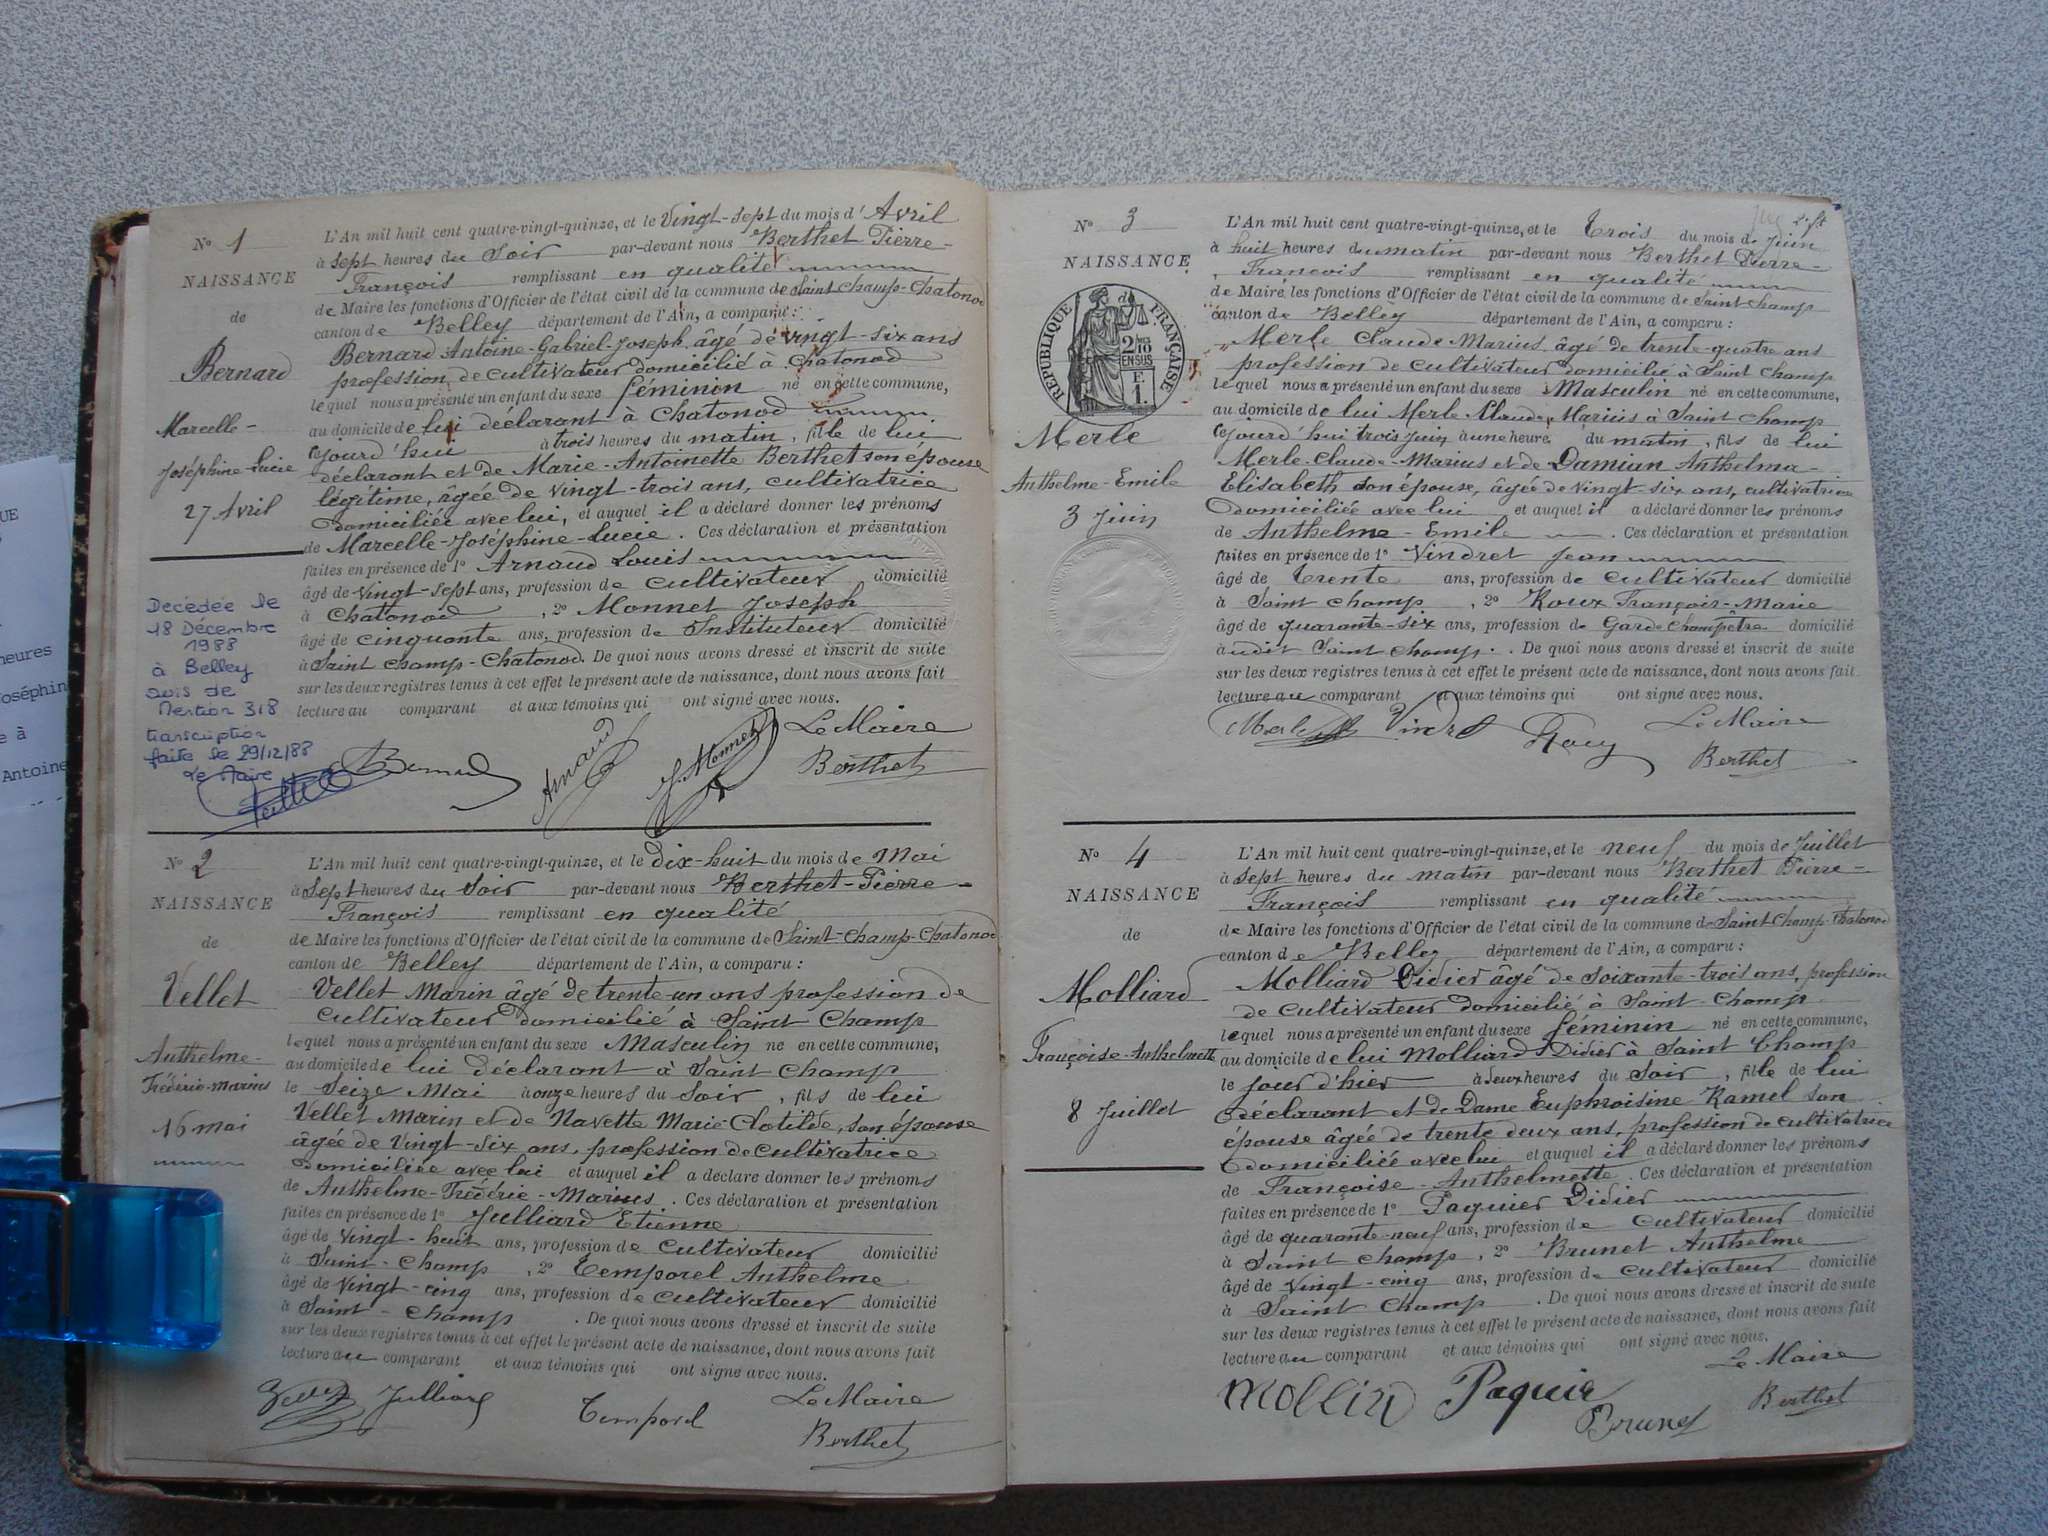 UE
heures
oséphin
e à
Antoine
N° 1
NAISSANCE
de
Bernard
Marcelle-
Joséphine-Lucie
27 Avril
Décédée le
18 Décembre
1988
à Belley
avis de
Mention 318
transcription
faite le 29/12/88
Le Maire
L'An mil huit cent quatre-vingt-quinze, et le Vingt-sept du mois d'Avril
à sept heures du Soir par-devant nous Berthet Pierre-
François remplissant en qualité
de Maire les fonctions d'Officier de l'état civil de la commune de Saint Champ-Chatonod
canton de Belley département de l'Ain, a comparu :
Bernard Antoine-Gabriel-Joseph, âgé de vingt-six ans
profession de cultivateur domicilié à Chatonod
lequel nous a présenté un enfant du sexe féminin né en cette commune,
au domicile de lui déclarant à Chatonod
cejourd'hui à trois heures du matin, fille de lui
déclarant et de Marie-Antoinette Berthet son épouse
légitime, âgée de vingt-trois ans, cultivatrice
domiciliée avec lui, et auquel il a déclaré donner les prénoms
de Marcelle-Joséphine-Lucie. Ces déclaration et présentation
faites en présence de 1° Arnaud Louis
âgé de vingt-sept ans, profession de cultivateur domicilié
à Chatonod, 2° Monnet Joseph
âgé de cinquante ans, profession de Instituteur domicilié
à Saint Champ-Chatonod. De quoi nous avons dressé et inscrit de suite
sur les deux registres tenus à cet effet le présent acte de naissance, dont nous avons fait
lecture au comparant et aux témoins qui ont signé avec nous.
Le Maire
Bernard Arnaud J. Monnet Berthet
N° 2
NAISSANCE
de
Vellet
Anthelme-
Frédéric-Marius
16 mai
L'An mil huit cent quatre-vingt-quinze, et le dix-huit du mois de Mai
à Sept heures du Soir par-devant nous Berthet-Pierre-
François remplissant en qualité
de Maire les fonctions d'Officier de l'état civil de la commune de Saint-Champ-Chatonod
canton de Belley département de l'Ain, a comparu :
Vellet Marin âgé de trente-un ans profession de
cultivateur domicilié à Saint Champ
lequel nous a présenté un enfant du sexe Masculin né en cette commune,
au domicile de lui déclarant à Saint Champ
le Seize Mai à onze heures du Soir, fils de lui
Vellet Marin et de Navette Marie-Clotilde, son épouse
âgée de Vingt-six ans, profession de cultivatrice
domiciliée avec lui et auquel il a déclaré donner les prénoms
de Anthelme-Frédéric-Marius. Ces déclaration et présentation
faites en présence de 1° Julliard Etienne
âgé de vingt-huit ans, profession de cultivateur domicilié
à Saint-Champ, 2° Temporel Anthelme
âgé de Vingt-cinq ans, profession de cultivateur domicilié
à Saint-Champ. De quoi nous avons dressé et inscrit de suite
sur les deux registres tenus à cet effet le présent acte de naissance, dont nous avons fait
lecture au comparant et aux témoins qui ont signé avec nous.
Vellet Julliard Temporel Le Maire
Berthet
N° 3
NAISSANCE
RÉPUBLIQUE FRANÇAISE
2/10
EN SUS
E
1.
Merle
Anthelme-Emile
3 Juin
L'An mil huit cent quatre-vingt-quinze, et le trois du mois de Juin
à huit heures du matin par-devant nous Berthet Pierre-
François remplissant en qualité
de Maire les fonctions d'Officier de l'état civil de la commune de Saint Champ
canton de Belley département de l'Ain, a comparu :
Merle Claude Marius âgé de trente-quatre ans
profession de cultivateur domicilié à Saint Champ
lequel nous a présenté un enfant du sexe Masculin né en cette commune,
au domicile de lui Merle Claude, Marius à Saint Champ
cejourd'hui trois Juin à une heure du matin, fils de lui
Merle-Claude-Marius et de Damian Anthelma-
Elisabeth son épouse, âgée de vingt-six ans, cultivatrice
domiciliée avec lui et auquel il a déclaré donner les prénoms
de Anthelme-Emile. Ces déclaration et présentation
faites en présence de 1° Vindret Jean
âgé de trente ans, profession de cultivateur domicilié
à Saint Champ, 2° Roux François-Marie
âgé de quarante-six ans, profession de Garde Champêtre domicilié
à udit Saint Champ. De quoi nous avons dressé et inscrit de suite
sur les deux registres tenus à cet effet le présent acte de naissance, dont nous avons fait
lecture au comparant et aux témoins qui ont signé avec nous.
Merle Vindret Roux Le Maire
Berthet
N° 4
NAISSANCE
de
Molliard
Françoise-Anthelmette
8 Juillet
L'An mil huit cent quatre-vingt-quinze, et le neuf du mois de Juillet
à sept heures du matin par-devant nous Berthet Pierre-
François remplissant en qualité
de Maire les fonctions d'Officier de l'état civil de la commune de Saint Champ-Chatonod
canton de Belley département de l'Ain, a comparu :
Molliard Didier âgé de soixante-trois ans, profession
de cultivateur domicilié à Saint-Champ
lequel nous a présenté un enfant du sexe féminin né en cette commune,
au domicile de lui Molliard Didier à Saint Champ
le jour d'hier à deux heures du Soir, fille de lui
déclarant et de Dame Euphroisine Ramel son
épouse âgée de trente deux ans, profession de cultivatrice
domiciliée avec lui et auquel il a déclaré donner les prénoms
de Françoise-Anthelmette. Ces déclaration et présentation
faites en présence de 1° Paquier Didier
âgé de quarante-neuf ans, profession de cultivateur domicilié
à Saint Champ, 2° Brunet Anthelme
âgé de vingt-cinq ans, profession de cultivateur domicilié
à Saint Champ. De quoi nous avons dressé et inscrit de suite
sur les deux registres tenus à cet effet le présent acte de naissance, dont nous avons fait
lecture au comparant et aux témoins qui ont signé avec nous.
Le Maire
Paquier Brunet Berthet